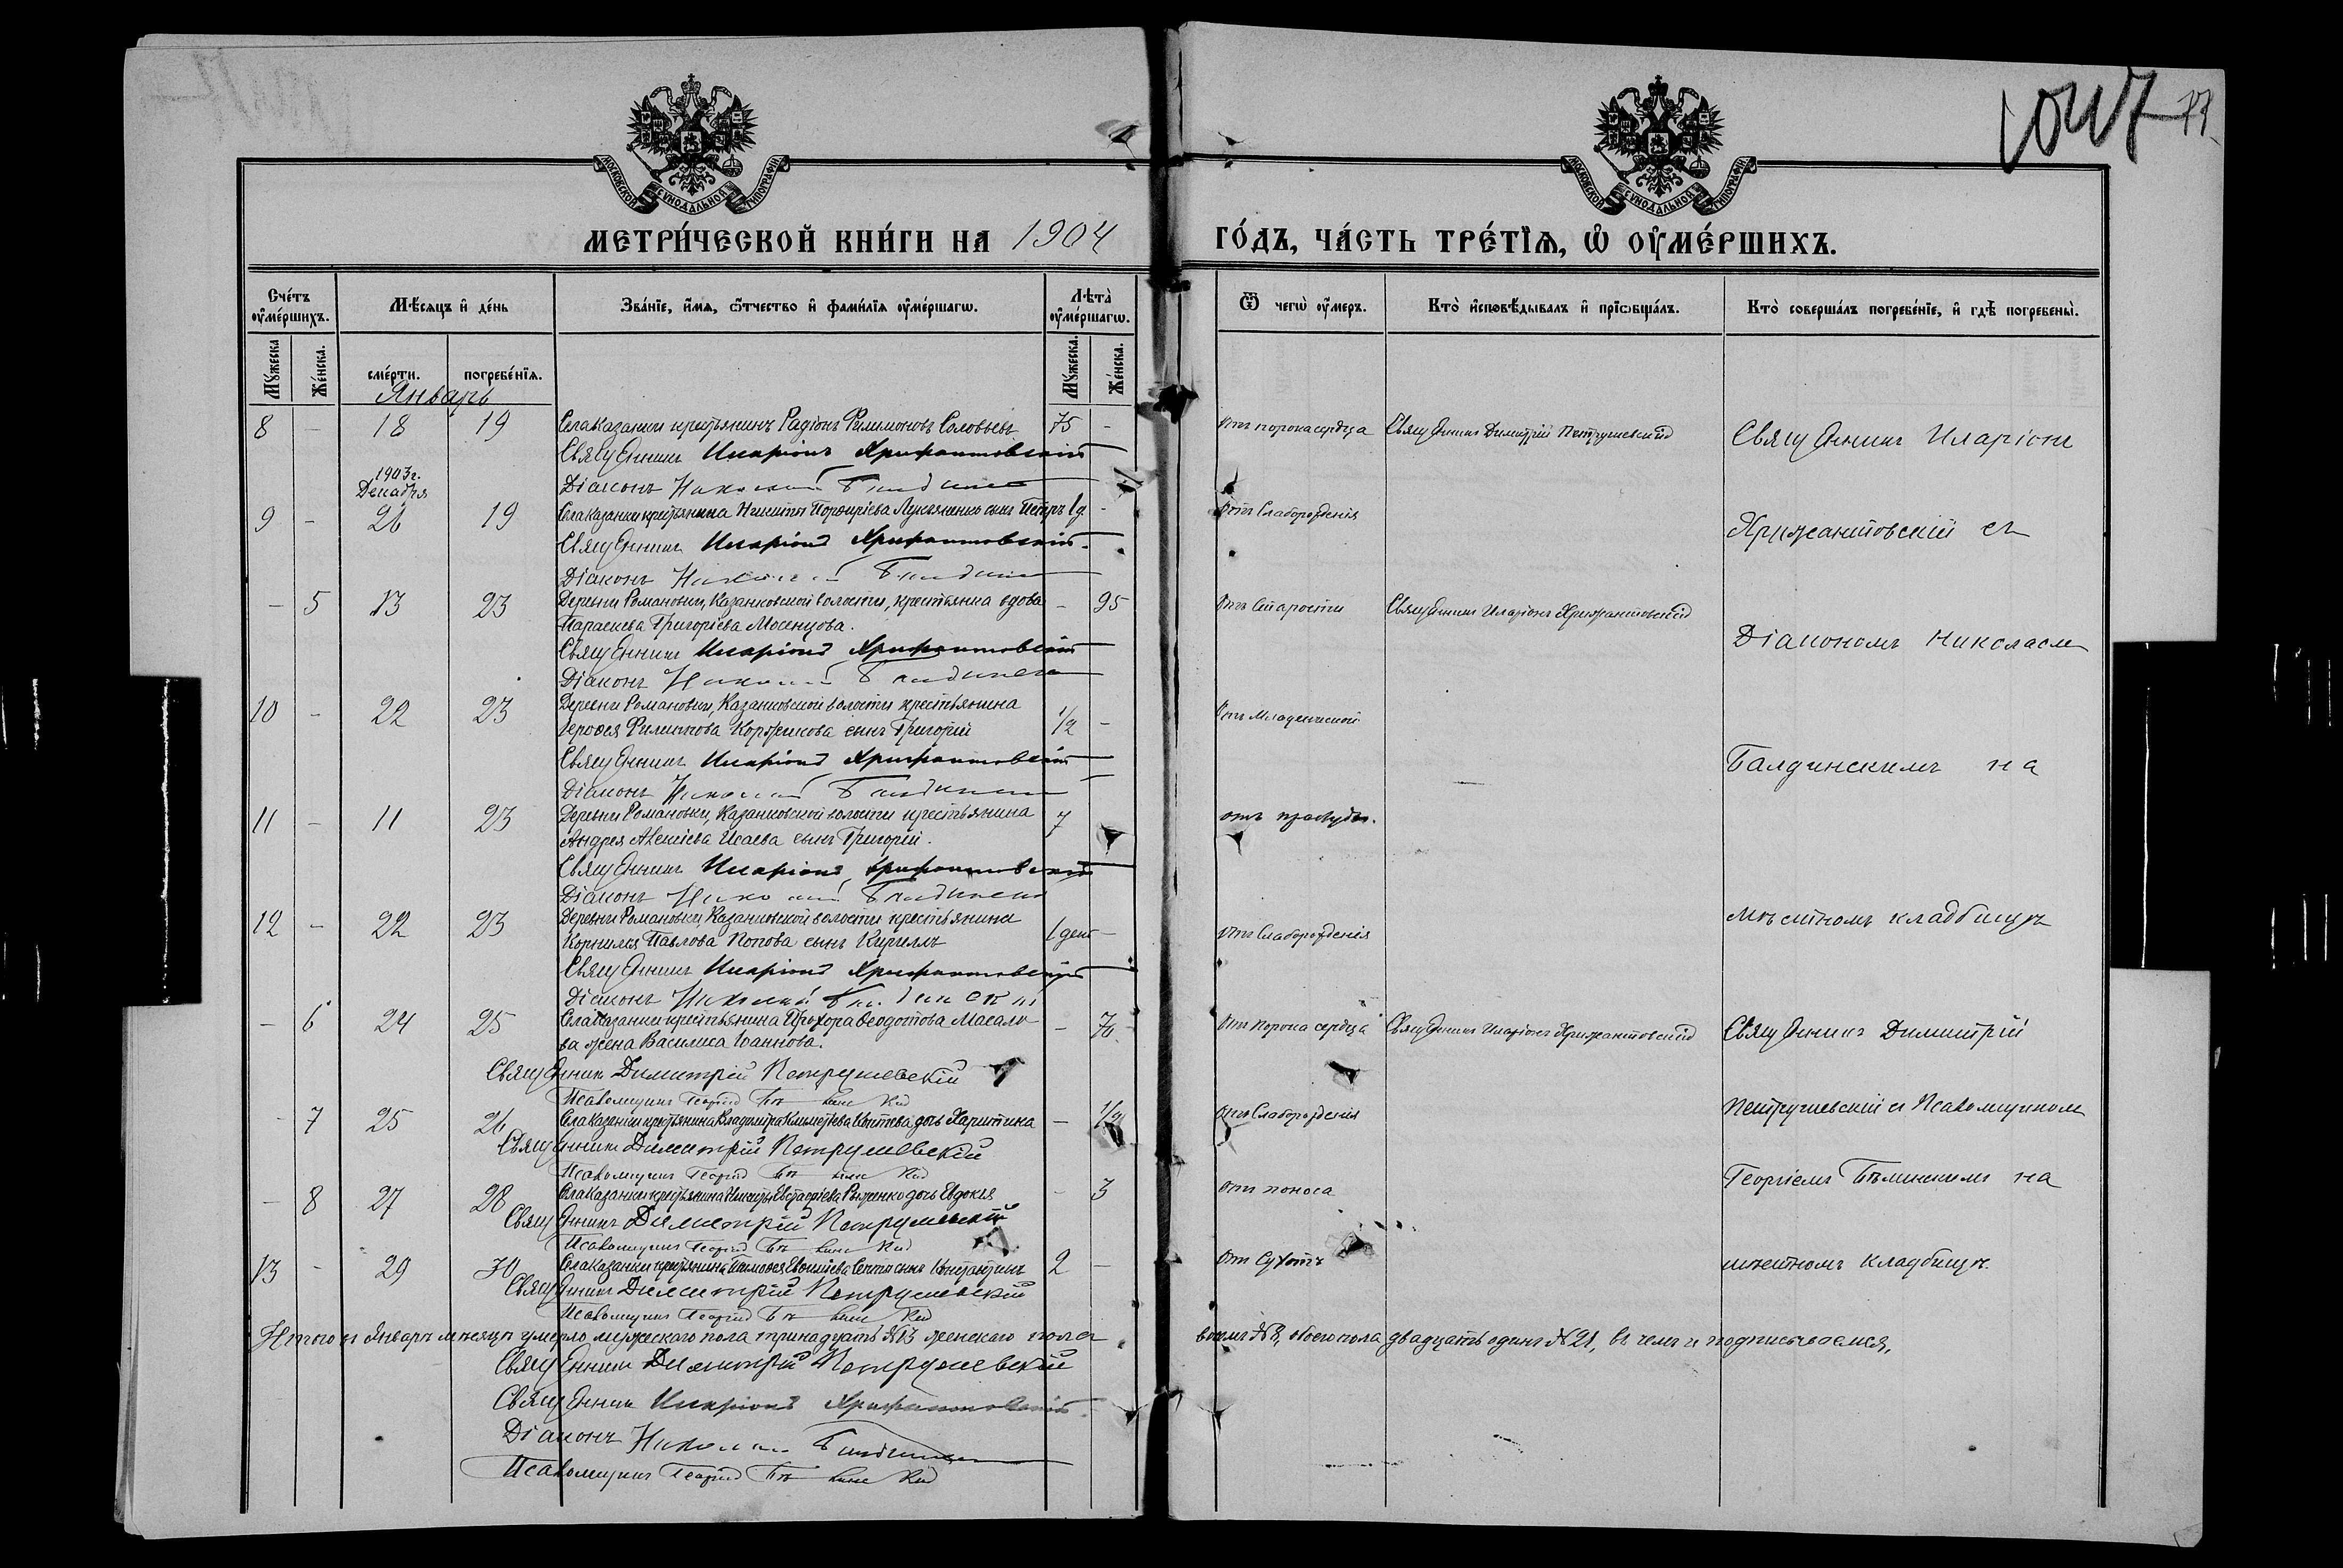 1047 77
МОСКОВСКОЙ СѴНОДАЛЬНОЙ ТИПОГРАФІИ
МОСКОВСКОЙ СѴНОДАЛЬНОЙ ТИПОГРАФІИ
МЕТРИ́ЧЕСКОЙ КНИ́ГИ НА 1904 ГО́ДЪ, ЧА́СТЬ ТРЕ́ТЇѦ, Ѡ҆ ОУ҆МЕ́РШИХЪ.
Сче́тъ оу҆ме́ршихъ. Мѣ́сѧцъ и҆ де́нь Зва́нїе, и҆́мѧ, ѻ҆́тчество и҆ фами́лїѧ оу҆ме́ршагѡ. Лѣ́та оу҆ме́ршагѡ. Ѿ чегѡ̀ оу҆́меръ. Кто̀ и҆сповѣ́дывалъ и҆ прїѻбща́лъ. Кто̀ соверша́лъ погребе́нїе, и҆ гдѣ̀ погребены̀.
Мꙋ́жеска. Же́нска. сме́рти. погребе́нїѧ. Мꙋ́жеска. Же́нска.
Январь
8 - 18 19 Села Казанки крестьянинъ Радіонъ Филимоновъ Соловьевъ 75 - Отъ порока сердца Священникъ Димитрій Петрушевскій Священникъ Иларіонъ
Священникъ Иларіонъ Хрисанѳовскій
1903 г.
Декабря
Діаконъ Николай
9 - 26 19 Села Казанки крестьянина Никиты Порфиріева Лукьяненко сынъ Петръ 1 д - Отъ Слаборожденія
Священникъ Иларіонъ
Діаконъ Николай съ
- 5 13 23 Деревни Романовки, Казанковской волости, крестьянка вдова - 95 Отъ Старости Священникъ Иларіонъ
Параскева Григоріева Мосенцова.
Священникъ Иларіонъ Діакономъ Николаемъ
Діаконъ Николай
10 - 22 23 Деревни Романовки, Казанковской волости крестьянина
Филиппова сынъ Григорій 1/2 - Отъ Младенческой
Священникъ Иларіонъ Балдинскимъ на
Діаконъ Николай
11 - 11 23 Деревни Романовки, Казанковской волости крестьянина 7 отъ простуды.
Андрея Исаева сынъ Григорій.
Священникъ Иларіонъ
Діаконъ Николай
12 - 22 23 Деревни Романовки, Казанковской волости крестьянина 1 день - мѣстномъ кладбищѣ
Корнилія Павлова Попова сынъ Кириллъ Отъ Слаборожденія
Священникъ Иларіонъ
Діаконъ Николай
- 6 24 25 Села Казанки крестьянина Прохора Ѳеодотова Масало- - 70 Отъ порока сердца Священникъ Иларіонъ Священникъ Димитрій
ва жена Василиса Іоаннова.
Священникъ Димитрій Петрушевскій
Псаломщикъ Георгій
- 7 25 26 Села Казанки крестьянина Владиміра дочь Харитина - 1/2 Отъ Слаборожденія Петрушевскій съ Псаломщикомъ
Священникъ Димитрій Петрушевскій
Псаломщикъ Георгій
- 8 27 28 Села Казанки крестьянина дочь Евдокія - 3 Отъ поноса Георгіемъ на
Священникъ Димитрій Петрушевскій
Псаломщикъ Георгій
13 - 29 30 Села Казанки крестьянина Тимоѳея сынъ Константинъ 2 - Отъ Сухотъ мѣстномъ кладбищѣ.
Священникъ Димитрій Петрушевскій
Псаломщикъ Георгій
Итого въ Январѣ мѣсяцѣ умерло мужескаго пола тринадцать №13 женскаго пола восемь №8, обоего пола двадцать одинъ №21, въ чемъ и подписываемся,
Священникъ Димитрій Петрушевскій
Священникъ Иларіонъ
Діаконъ Николай
Псаломщикъ Георгій